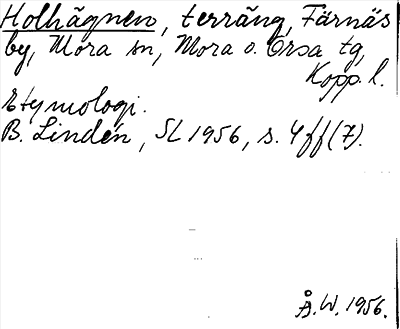 Holhägnen, terräng, Färnäs
by, Mora sn, Mora o. Orsa tg,
Kopp. l.
Etymologi.
B. Lindén, SL 1956, s. 4 ff (7).
Å. W. 1956.